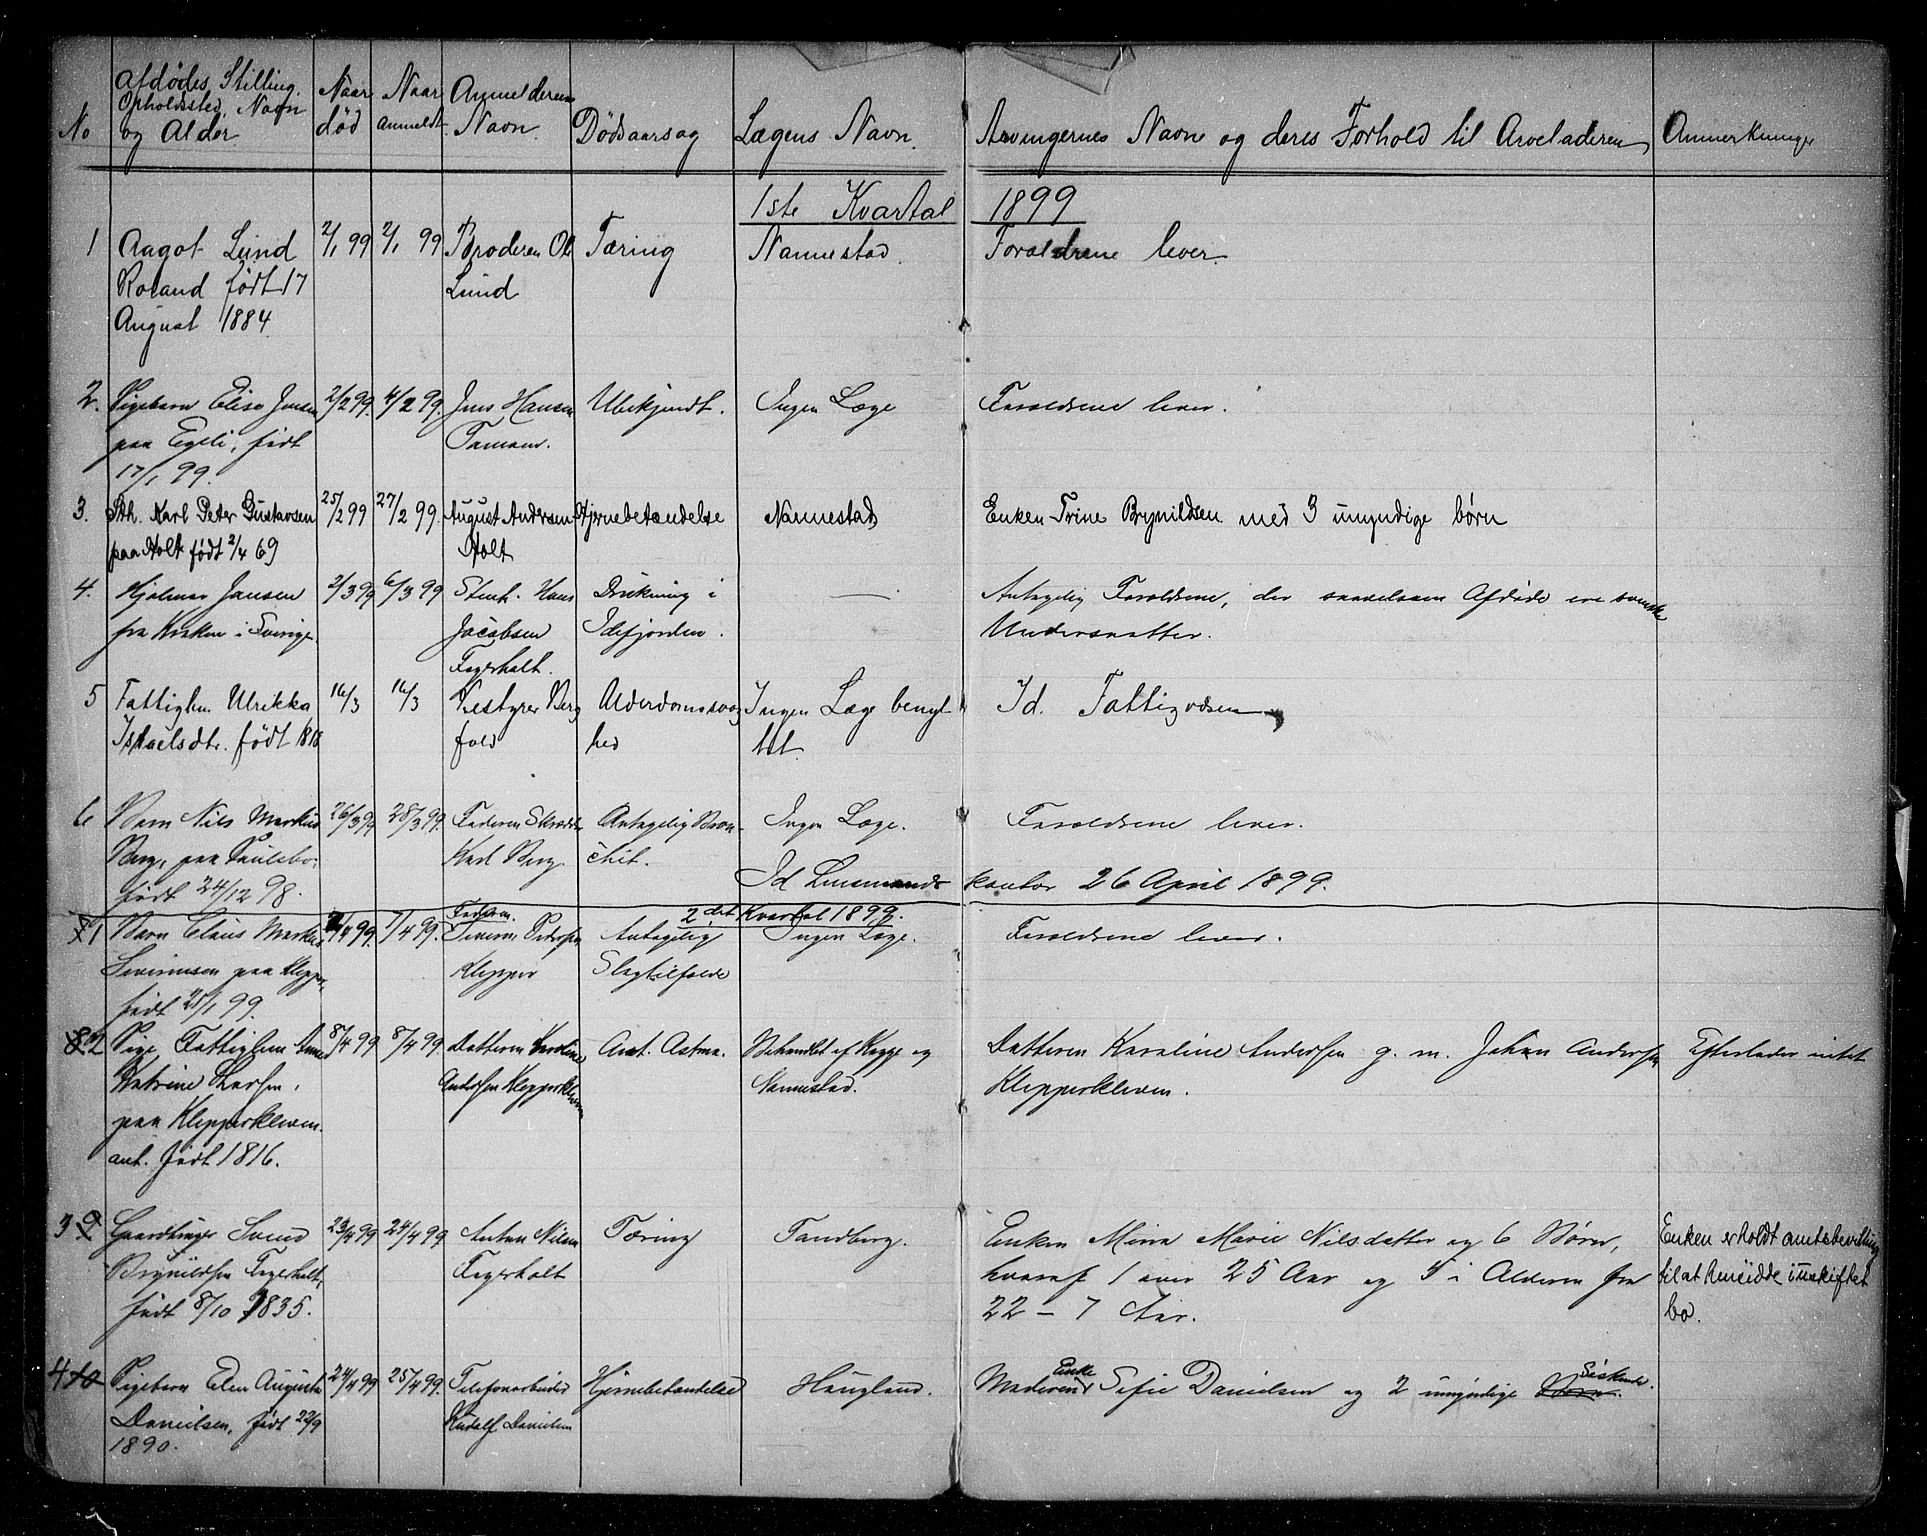 No
Afdødes Stilling,
Opholdssted, Navn
og Alder
Naar
død
Naar
anmeldt
Anmelderens
Navn
Dødsaarsag
Lægens Navn.
Arvingernes Navne og deres Forhold til Arveladeren
Anmerkninger
1ste Kvartal 1899
1 Aagot Lund
født 17
August 1884
2/1 99 2/1 99
Broderen Ole
Lund
Tæring
Nannestad.
Forældrene lever.
2. Pigebarn Elise Jensen
paa Egeli, født
17/1 99.
2/2 99. 4/2 99.
Jens Hansen
Ubekjendt.
Ingen Læge
Forældrene lever.
3. Sth. Karl Peter Gustavsen
paa Holt født 2/4 69
25/2 99 27/2 99.
August Andersen
Holt
Hjernebetændelse
Nannestad
Enken Trine Brynildsen med 3 umyndige børn
4. Hjalmar Jansen
fra i Sverige.
2/3 99 6/3 99
Stenh. Hans
Jacobsen
Fagerholt.
Drukning i
Idefjorden.
—
Antagelig Forældrene, der saavelsom Afdøde ere svenske
Undersaatter.
5 Fattiglem Ulrikka
Israelsdtr. født 1818
16/3 16/3
Bestyrer Berg
fald
Alderdomssvag
hed
Ingen Læge benyt
tet
Id. Fattigvæsen
6 Barn Nils Markus
Berg, paa Paulsbo,
født 24/12 98.
26/3 99 28/3 99.
Faderen
Karl Berg.
Antagelig Bron-
chit.
Ingen Læge.
Forældrene lever.
Id Lensmandskontor 26 April 1899.
2det Kvartal 1899.
7 1 Barn Claus Markus
Severinsen paa Klepper,
født 25/1 99.
4/4 99. 7/4 99.
Faderen
Severin Pedersen
Klepper
Antagelig
Slagtilfælde
Ingen Læge.
Forældrene lever.
8 2 Pige, Fattiglem Anne
Katrine Larsen,
paa Klepperkleven
ant. født 1816.
8/4 99 8/4 99
Datteren Karoline
Andersen Klepperkleven
Ant. Astma.
Behandlet af Kagge og
Nannestad.
Datteren Karoline Andersen g. m. Johan Andersen
Klepperkleven.
Efterlader intet
3 9 Gaardbruger Svend
Brynildsen Fagerholt,
født 8/10 1835.
23/4 99 24/4 99
Anton Nilsen
Fagerholt
Tæring
Tandberg.
Enken Mina Marie Nilsdatter og 6 Børn,
hvoraf 1 over 25 Aar og 5 i Alderen fra
22 – 7 Aar.
Enken erholdt amtsbevilling
til at hensidde i uskiftet
bo.
4 10 Pigebarn Elen Augusta
Danielsen, født 22/9
1890.
24/4 99 25/4 99.
Telefonarbeider
Rudolf Danielsen
Hjernebetændelse
Haugland.
Moderen Enke Sofie Danielsen og 2 umyndige Børn. Søskende.